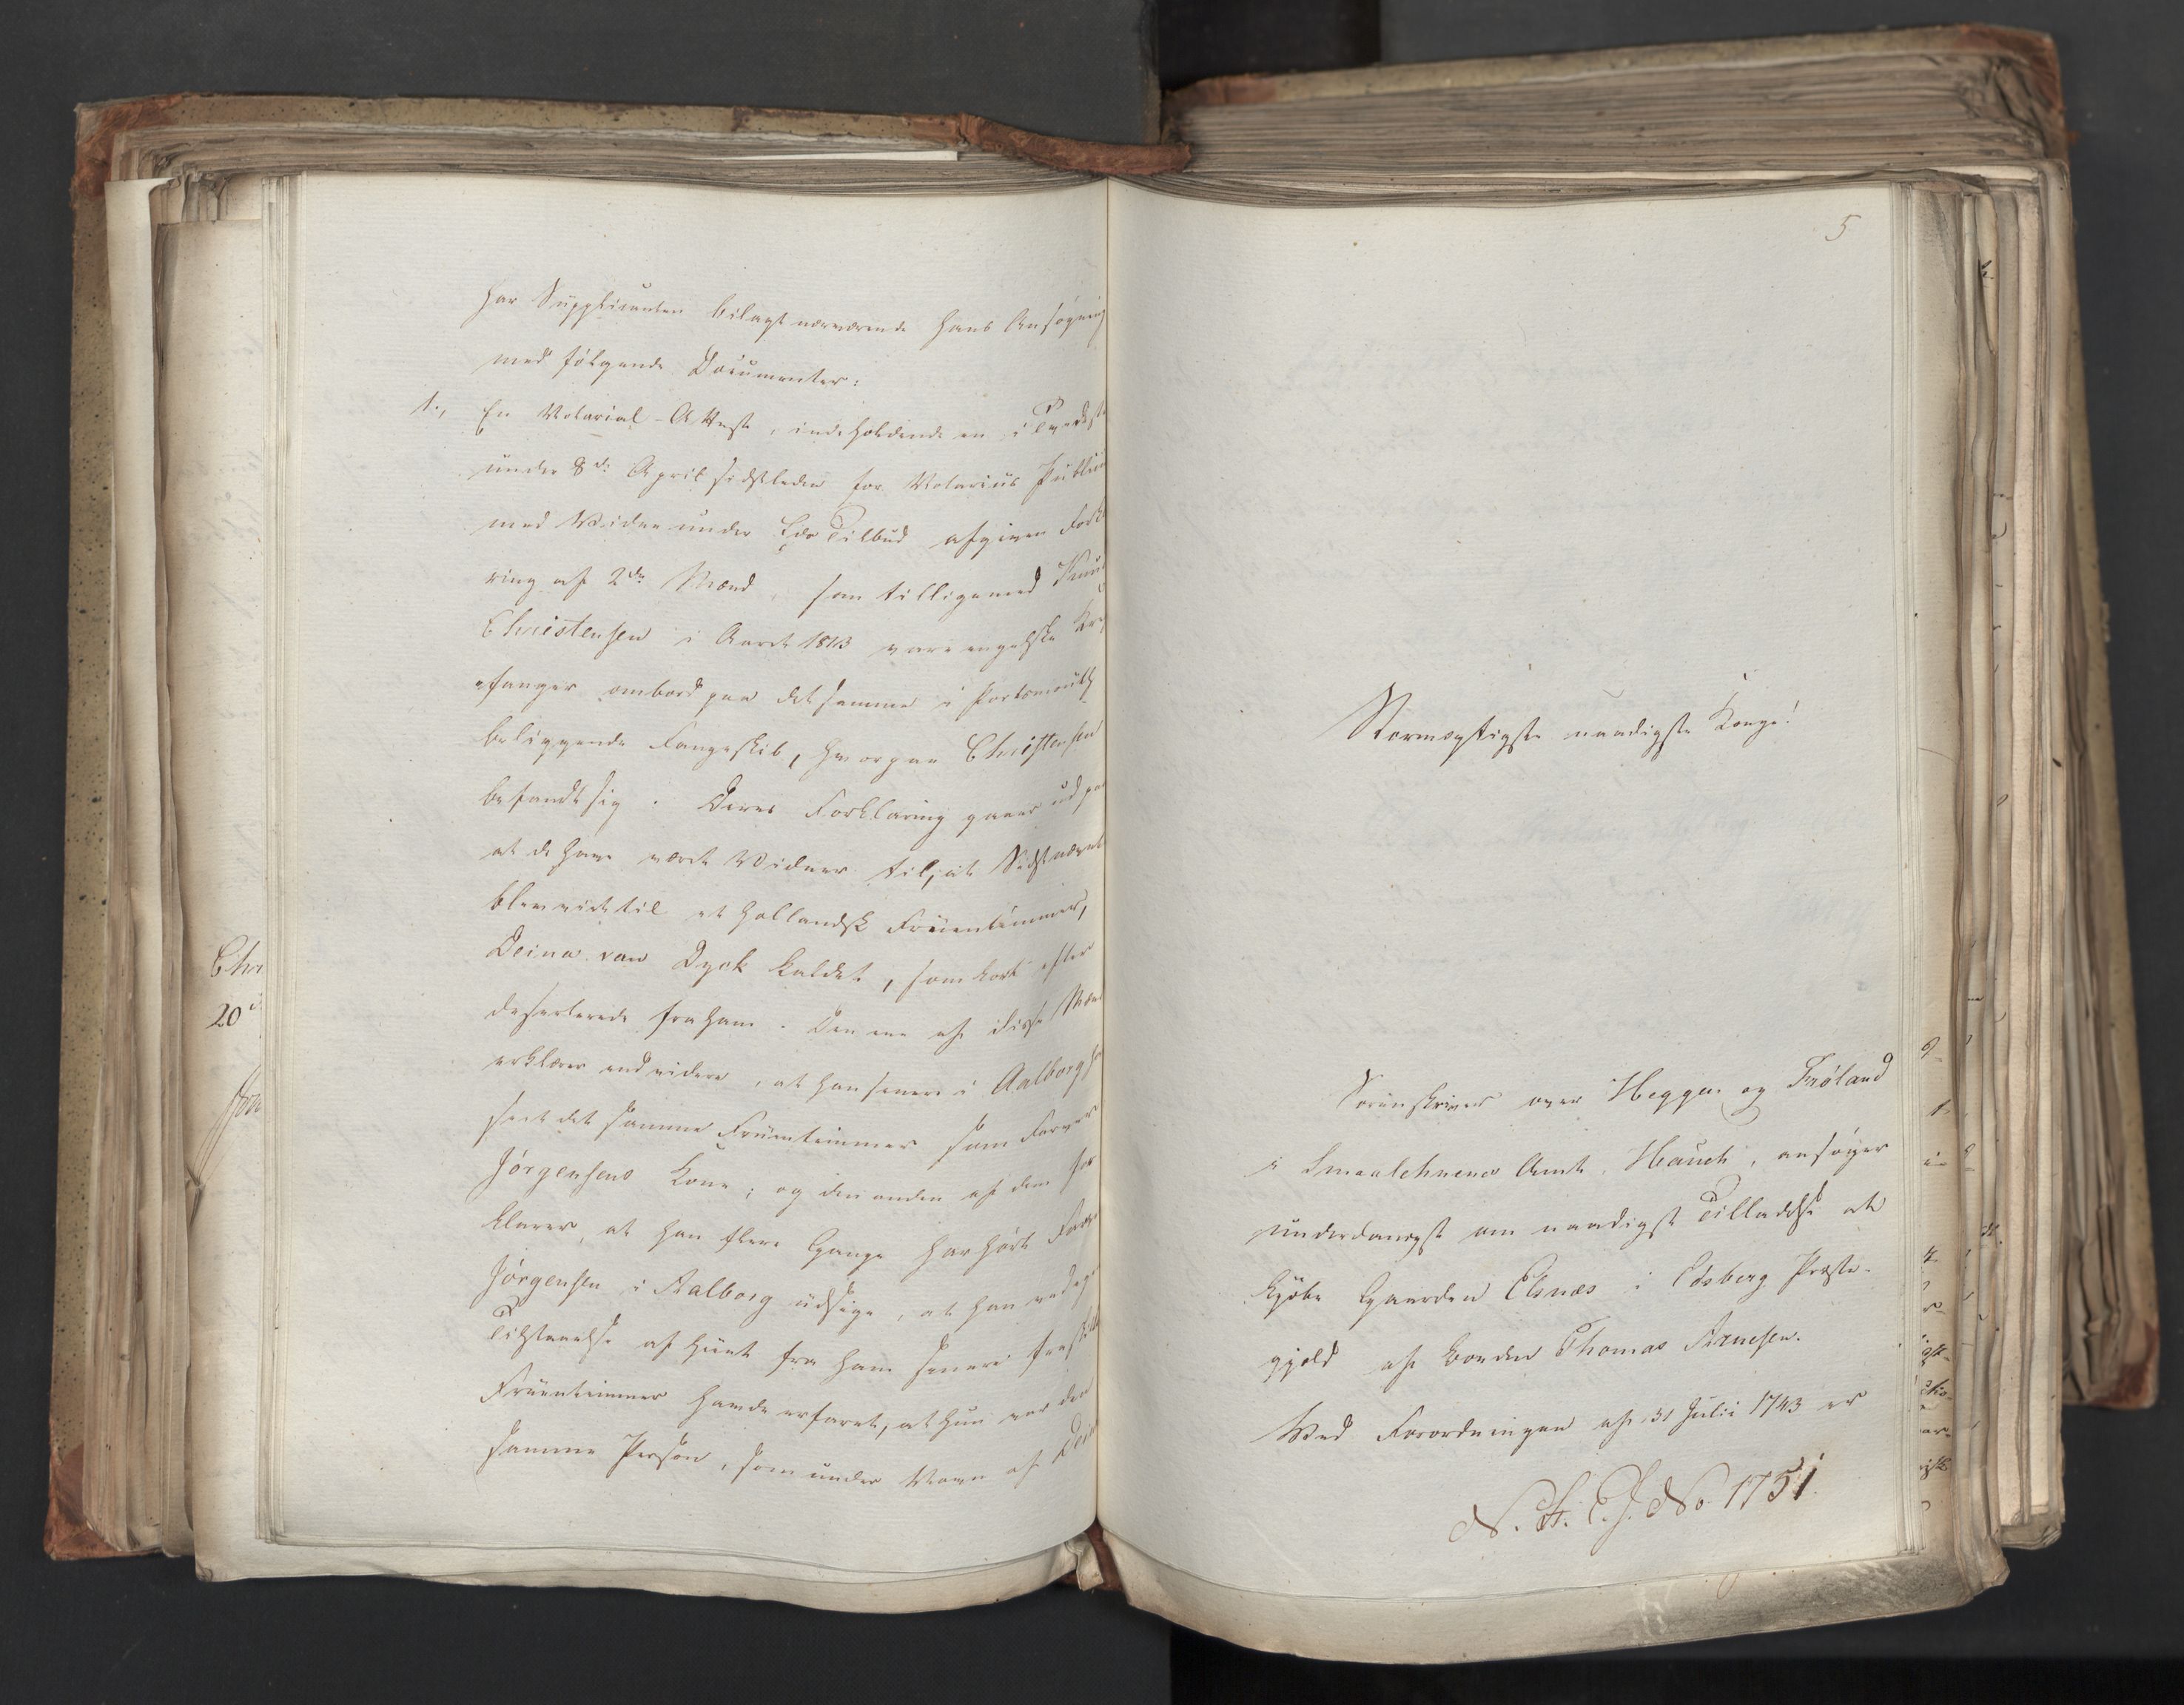 har Supplicanten bilagt nærværende hans Ansøgning
med følgende Documenter:
1., En Notarial-Attest, indeholdende en i Tvedest
under 8de April sidstleden for Notarius Public
med Vidner under Eds Tilbud afgiven Forkl
ring af 2de Mænd, som tilligemed Knud
Christensen i Aaret 1813 vare engelske Kri
fanger ombord paa det samme i Portsmouth
beliggende Fangeskib, hvorpaa Christensen
befandt sig. Deres Forklaring gaaer ud paa
at de have været Vidner til, at Sidstnævnte
blev viet til et hollandsk Fruentimmer,
Deina van Dyck kaldet, som kort efter
deserterede fra ham. Den ene af disse Mænd
erklærer endvidere, at han senere i Aalborg h
seet det samme Fruentimmer som Farver
Jørgensens Kone; og den anden af dem for
klarer, at han flere Gange har hørt Farve
Jørgensen i Aalborg udsige, at han ved eg
Tilstaaelse af hiint fra ham senere fraskilte
Fruentimmer havde erfaret, at hun var den
samme Person, som under Navn af Dein
Chri
20d
5
Stormægtigste naadigste Konge!
Sorenskriver over Heggen og Frøland
i Smaalehnenes Amt, Hauch, ansøger
underdanigst om naadigst Tilladelse at
kjøbe Gaarden Elsnæs i Edsberg Præste-
gjeld af Bonden Thomas Arnesen.
Ved Forordningen af 31 Julii 1743 er
N. H. C. J. No. 1751.